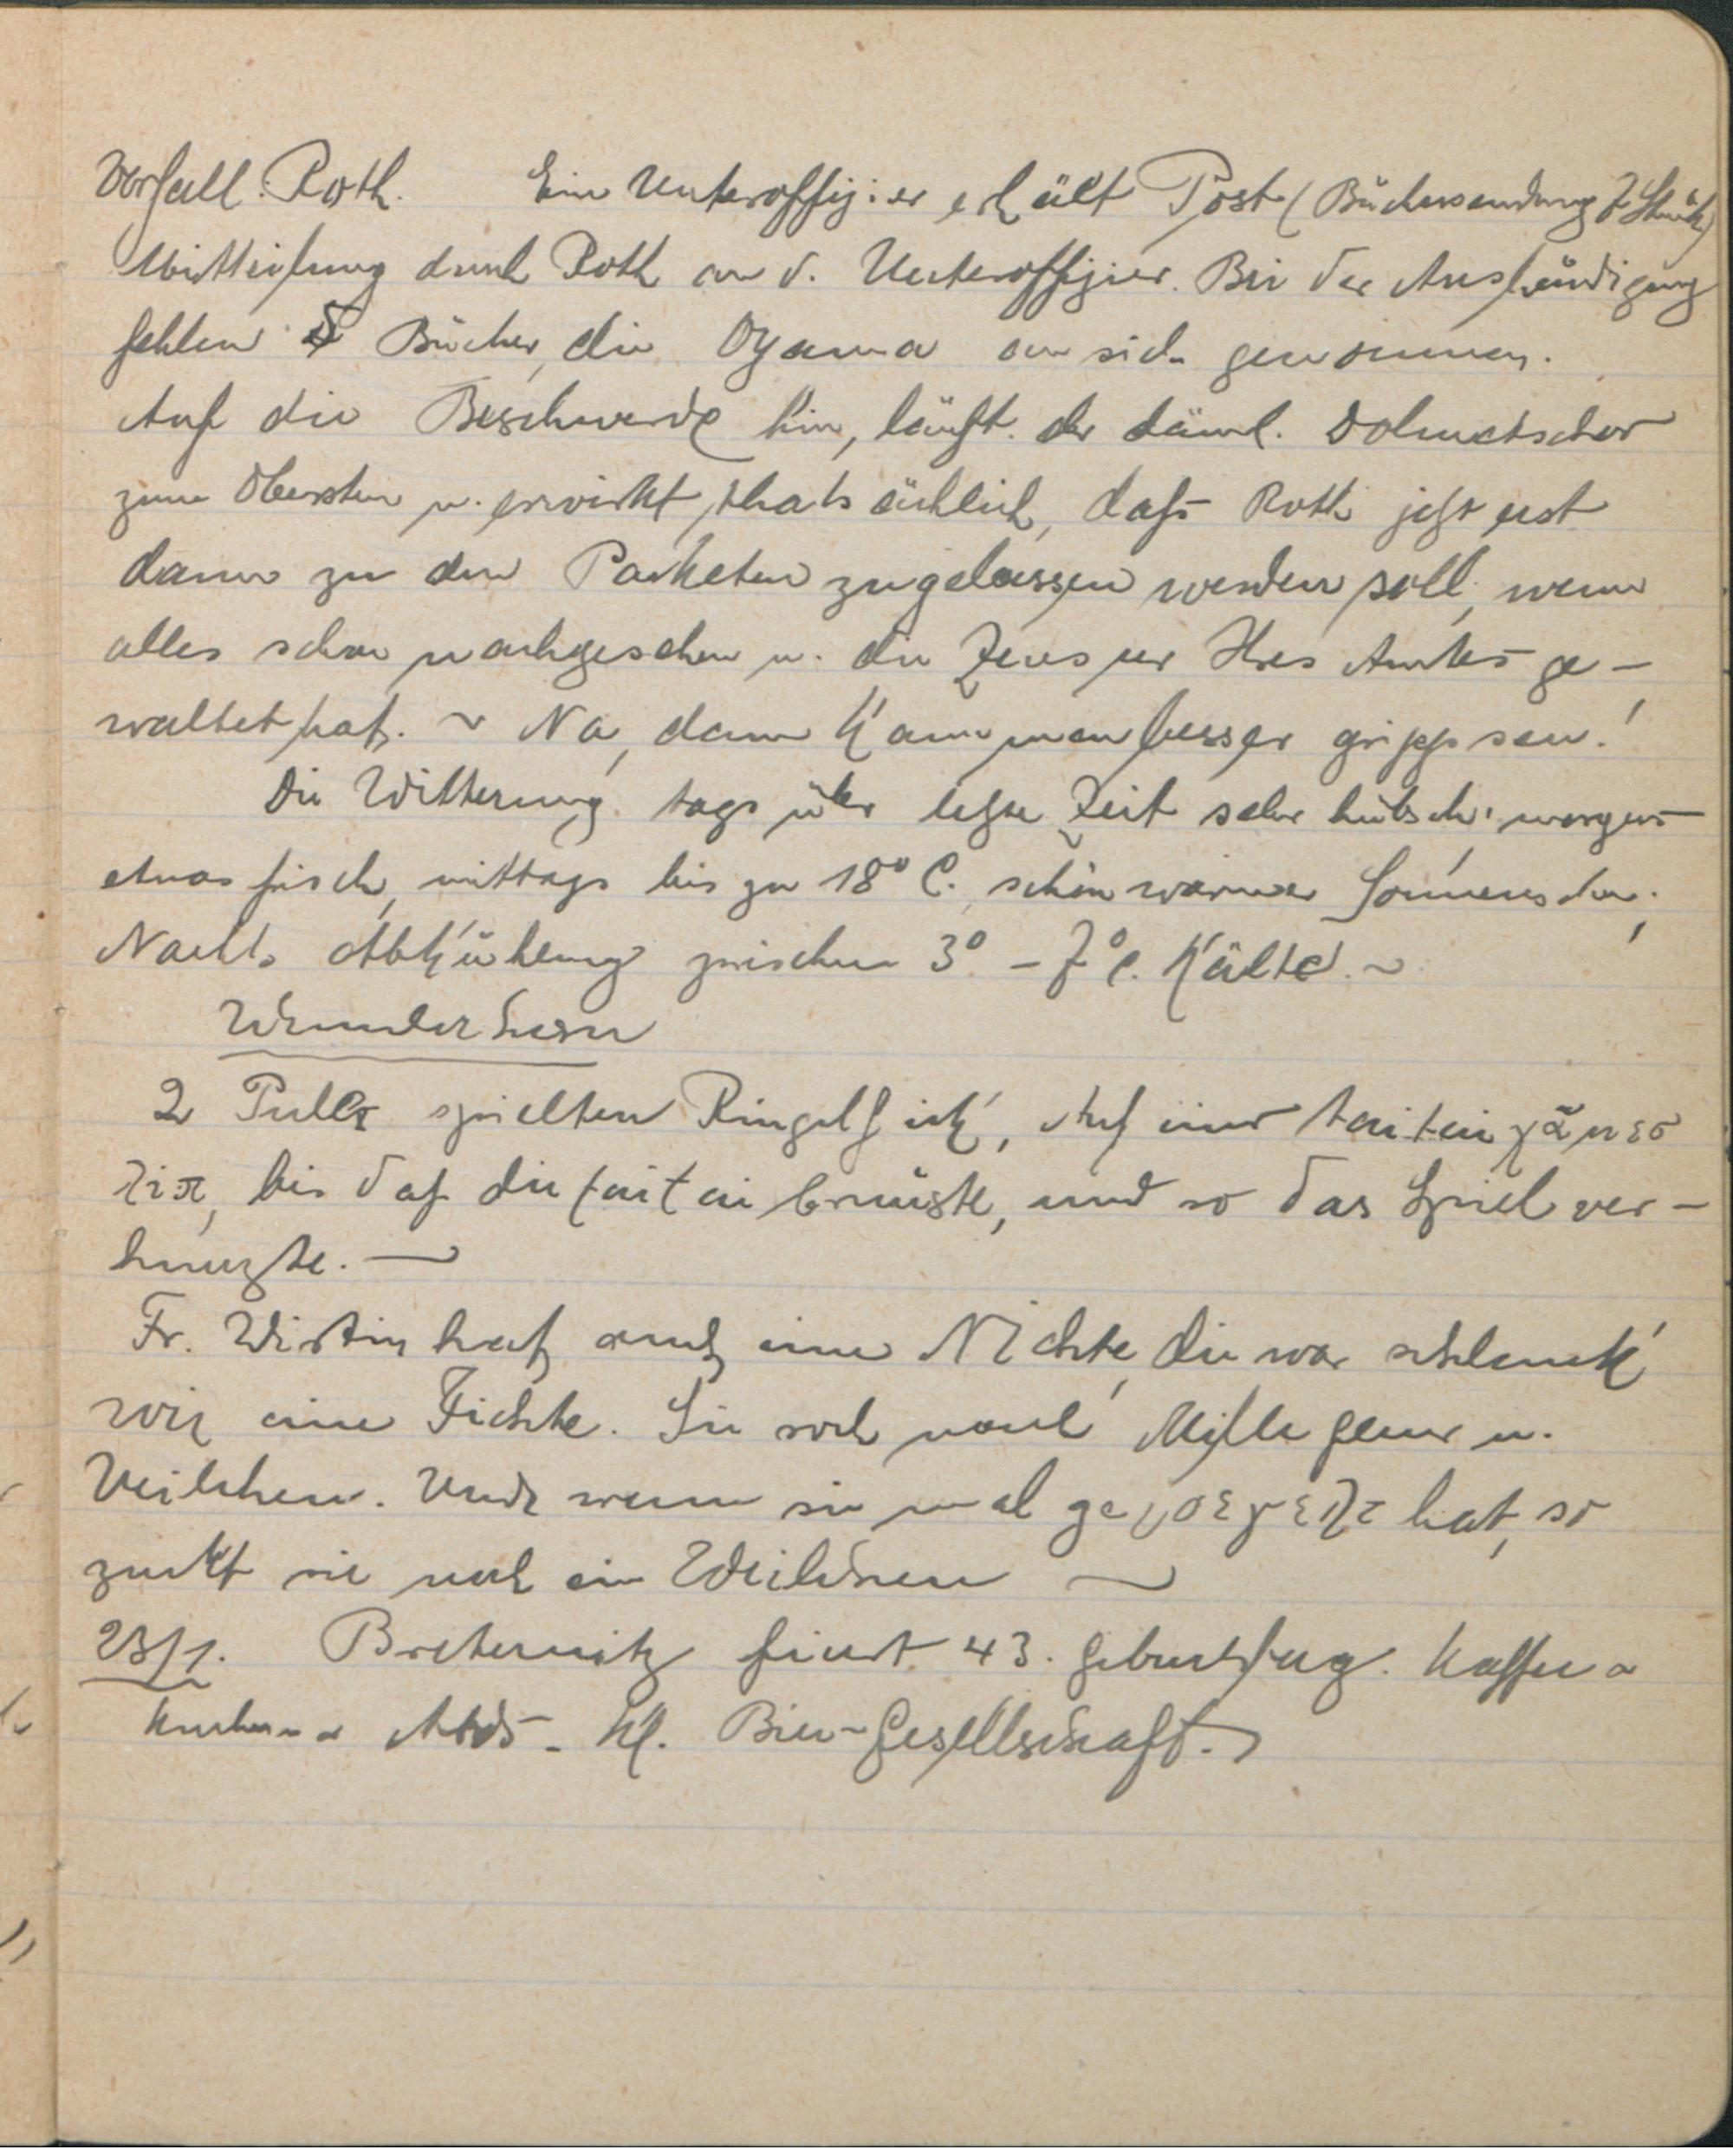 Vorfall Roth. Ein Unteroffizier erhält Post (Büchersendung 7 Stück)
Mitteilung durch Roth an d. Unteroffizier. Bei der Aushändigung
fehlen Bücher, die Oyama an sich genommen.
Auf die Beschwerde hin, läuft der däml. Dolmetscher
zum Obersten u. erwirkt thatsächlich, dass Roth jetzt erst
dann zu den Packeten zugelassen werden soll, wenn
alles schon nachgesehen u. die Zensur Ihres Amtes ge-
waltet hat. ~ Na, dann kann man besser grippsen!
Die Witterung tags über letzte Zeit sehr hübsch: morgens
etwas frisch, mittags bis zu 18° C. schön warmer Sonnensch.
Nachts Abkühlung zwischen 3° - 7° C. Kälte. ~
Wunderhorn
2 spielten Ringel, Auf einer
bis daß die und so das Spiel ver-
hunzte. —
Fr. Wirtin hat auch eine Nichte, die war schlank
wie eine Fichte. Sie roch nach Mille fleur u.
Veilchen. Und wenn sie mal hat, so
zuckt sie noch ein Weilchen ~
23/1. Breternitz feiert 43. Geburtstag. Kaffee
Kuchen Abds - Kl. Bier-Gesellschaft.